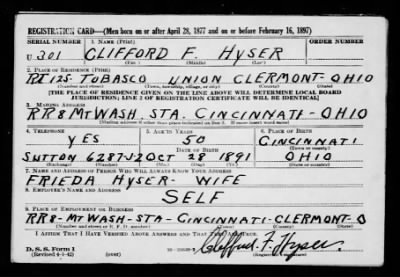 REGISTRATION CARD—(Men born on or after April 28, 1877 and on or before February 16, 1897)
SERIAL NUMBER 1. NAME (Print) ORDER NUMBER
U 301 CLIFFORD F. HYSER
(First) (Middle) (Last)
2. PLACE OF RESIDENCE (Print)
RT 125 TOBASCO UNION CLERMONT OHIO
(Number and street) (Town, township, village, or city) (County) (State)
[THE PLACE OF RESIDENCE GIVEN ON THE LINE ABOVE WILL DETERMINE LOCAL BOARD
JURISDICTION; LINE 2 OF REGISTRATION CERTIFICATE WILL BE IDENTICAL]
3. MAILING ADDRESS
RR8 MT WASH. STA. CINCINNATI-OHIO
[Mailing address if other than place indicated on line 2. If same insert word same]
4. TELEPHONE 5. AGE IN YEARS 6. PLACE OF BIRTH
YES 50 CINCINNATI
DATE OF BIRTH (Town or county)
SUTTON 6287-J2 OCT 28 1891 OHIO
(Mo.) (Day) (Yr.) (State or country)
7. NAME AND ADDRESS OF PERSON WHO WILL ALWAYS KNOW YOUR ADDRESS
FRIEDA HYSER- WIFE
8. EMPLOYER'S NAME AND ADDRESS
SELF
9. PLACE OF EMPLOYMENT OR BUSINESS
RR8-MT WASH-STA-CINCINNATI-CLERMONT-O
(Number and street or R. F. D. number) (Town) (County) (State)
I AFFIRM THAT I HAVE VERIFIED ABOVE ANSWERS AND THAT THEY ARE TRUE.
D. S. S. Form 1
(Revised 4-1-42) (over) Clifford F. Hyser